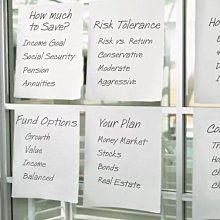 How much
to Save?
Income Goal
Social Security
Pension
Annuities
Risk Tolerance
Risk vs. Return
Conservative
Moderate
Aggressive
Fund Options
Growth
Value
Income
Balanced
Your Plan
Money Market
Stocks
Bonds
Real Estate